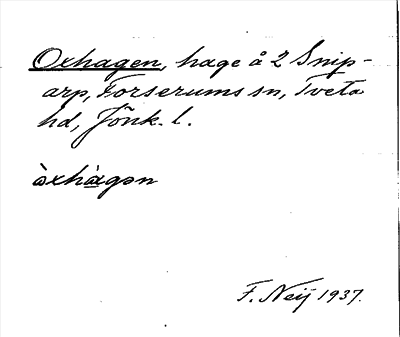 Oxhagen, hage å 2 Snip-
arp, Forserums sn, Tveta
hd, Jönk. l.
òxhàgən
F. Neij 1937.